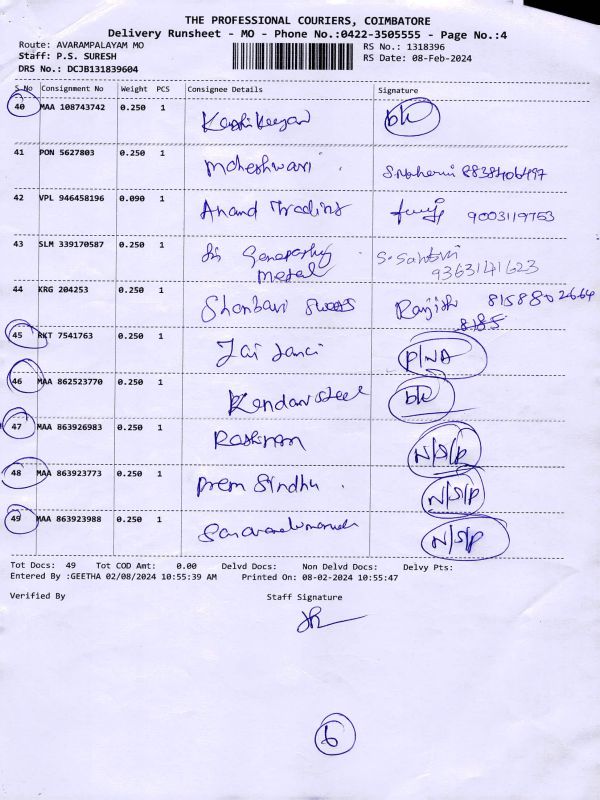 THE PROFESSIONAL COURIERS, COIMBATORE
Delivery Runsheet - MO - Phone No.:0422-3505555 - Page No.:4
Route: AVARAMPALAYAM MO RS No.: 1318396
Staff: P.S. SURESH RS Date: 08-Feb-2024
DRS No.: DCJB131839604
S No Consignment No Weight PCS Consignee Details Signature
40 MAA 108743742 0.250 1 bk
41 PON 5627803 0.250 1 Maheshwari 8838406497
42 VPL 946458196 0.090 1 Anand Trading 9003119753
43 SLM 339170587 0.250 1 Sri Ganapathy S. Santhi
Metal 9363141623
44 KRG 204253 0.250 1 Shanbari Sweets Ranjith 8158802664
8185
45 RKT 7541763 0.250 1 Jai P/NA
46 MAA 862523770 0.250 1 Kandan Steel bk
47 MAA 863926983 0.250 1 N/S/P
48 MAA 863923773 0.250 1 Prem Sindhu N/S/P
49 MAA 863923988 0.250 1 N/S/P
Tot Docs: 49 Tot COD Amt: 0.00 Delvd Docs: Non Delvd Docs: Delvy Pts:
Entered By :GEETHA 02/08/2024 10:55:39 AM Printed On: 08-02-2024 10:55:47
Verified By Staff Signature
6